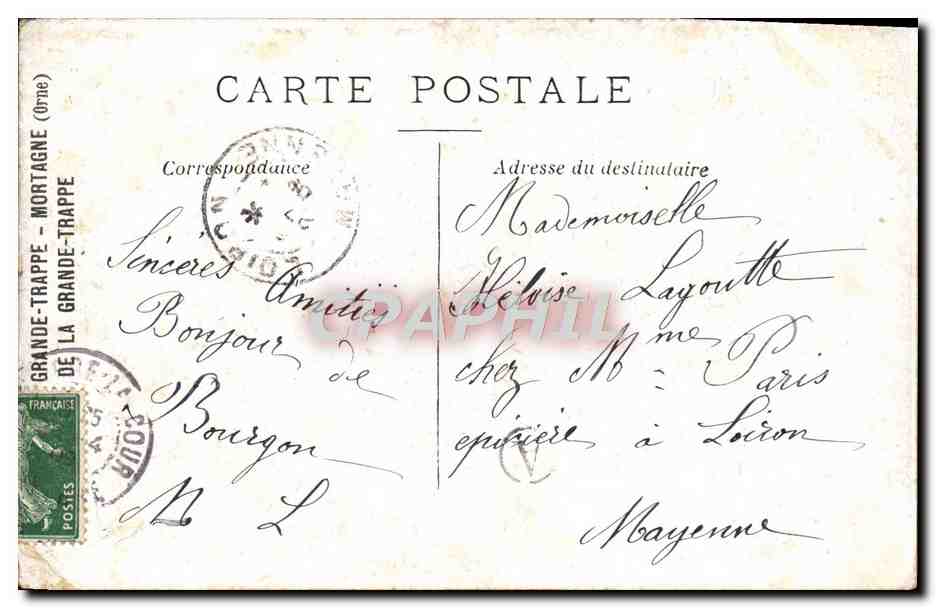 CARTE POSTALE
Correspondance
Adresse du destinataire
GRANDE-TRAPPE - MORTAGNE (Orne)
DE LA GRANDE-TRAPPE
Sincères Amitiés
Bonjour de
Bourgon
M L
Mademoiselle
Héloise Lagoutte
chez Mme Paris
epiciere à Loiron
Mayenne
CPAPHIL
FRANÇAISE
POSTES
COUR
A